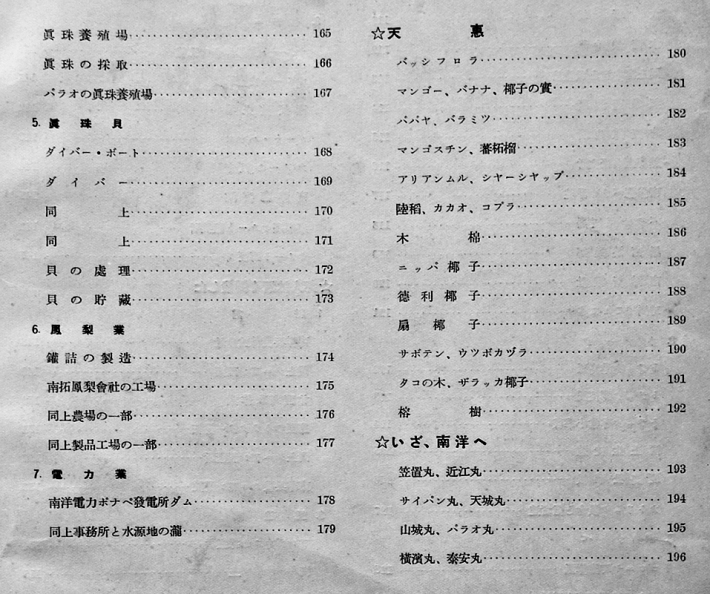 眞珠養殖場 165
眞珠の採取 166
パラオの眞珠養殖場 167
5. 眞珠貝
ダイバー・ボート 168
ダイバー 169
同上 170
同上 171
貝の處理 172
貝の貯藏 173
6. 鳳梨業
罐詰の製造 174
南拓鳳梨會社の工場 175
同上農場の一部 176
同上製品工場の一部 177
7. 電力業
南洋電力ポナペ發電所ダム 178
同上事務所と水源地の瀧 179
☆天惠
パッシフロラ 180
マンゴー、バナナ、椰子の實 181
パパヤ、パラミツ 182
マンゴスチン、蕃柘榴 183
アリアンムル、シヤーシヤップ 184
陸稻、カカオ、コプラ 185
木棉 186
ニッパ椰子 187
德利椰子 188
扇椰子 189
サボテン、ウツボカヅラ 190
タコの木、ザラッカ椰子 191
榕樹 192
☆いざ、南洋へ
笠置丸、近江丸 193
サイパン丸、天城丸 194
山城丸、パラオ丸 195
橫濱丸、泰安丸 196